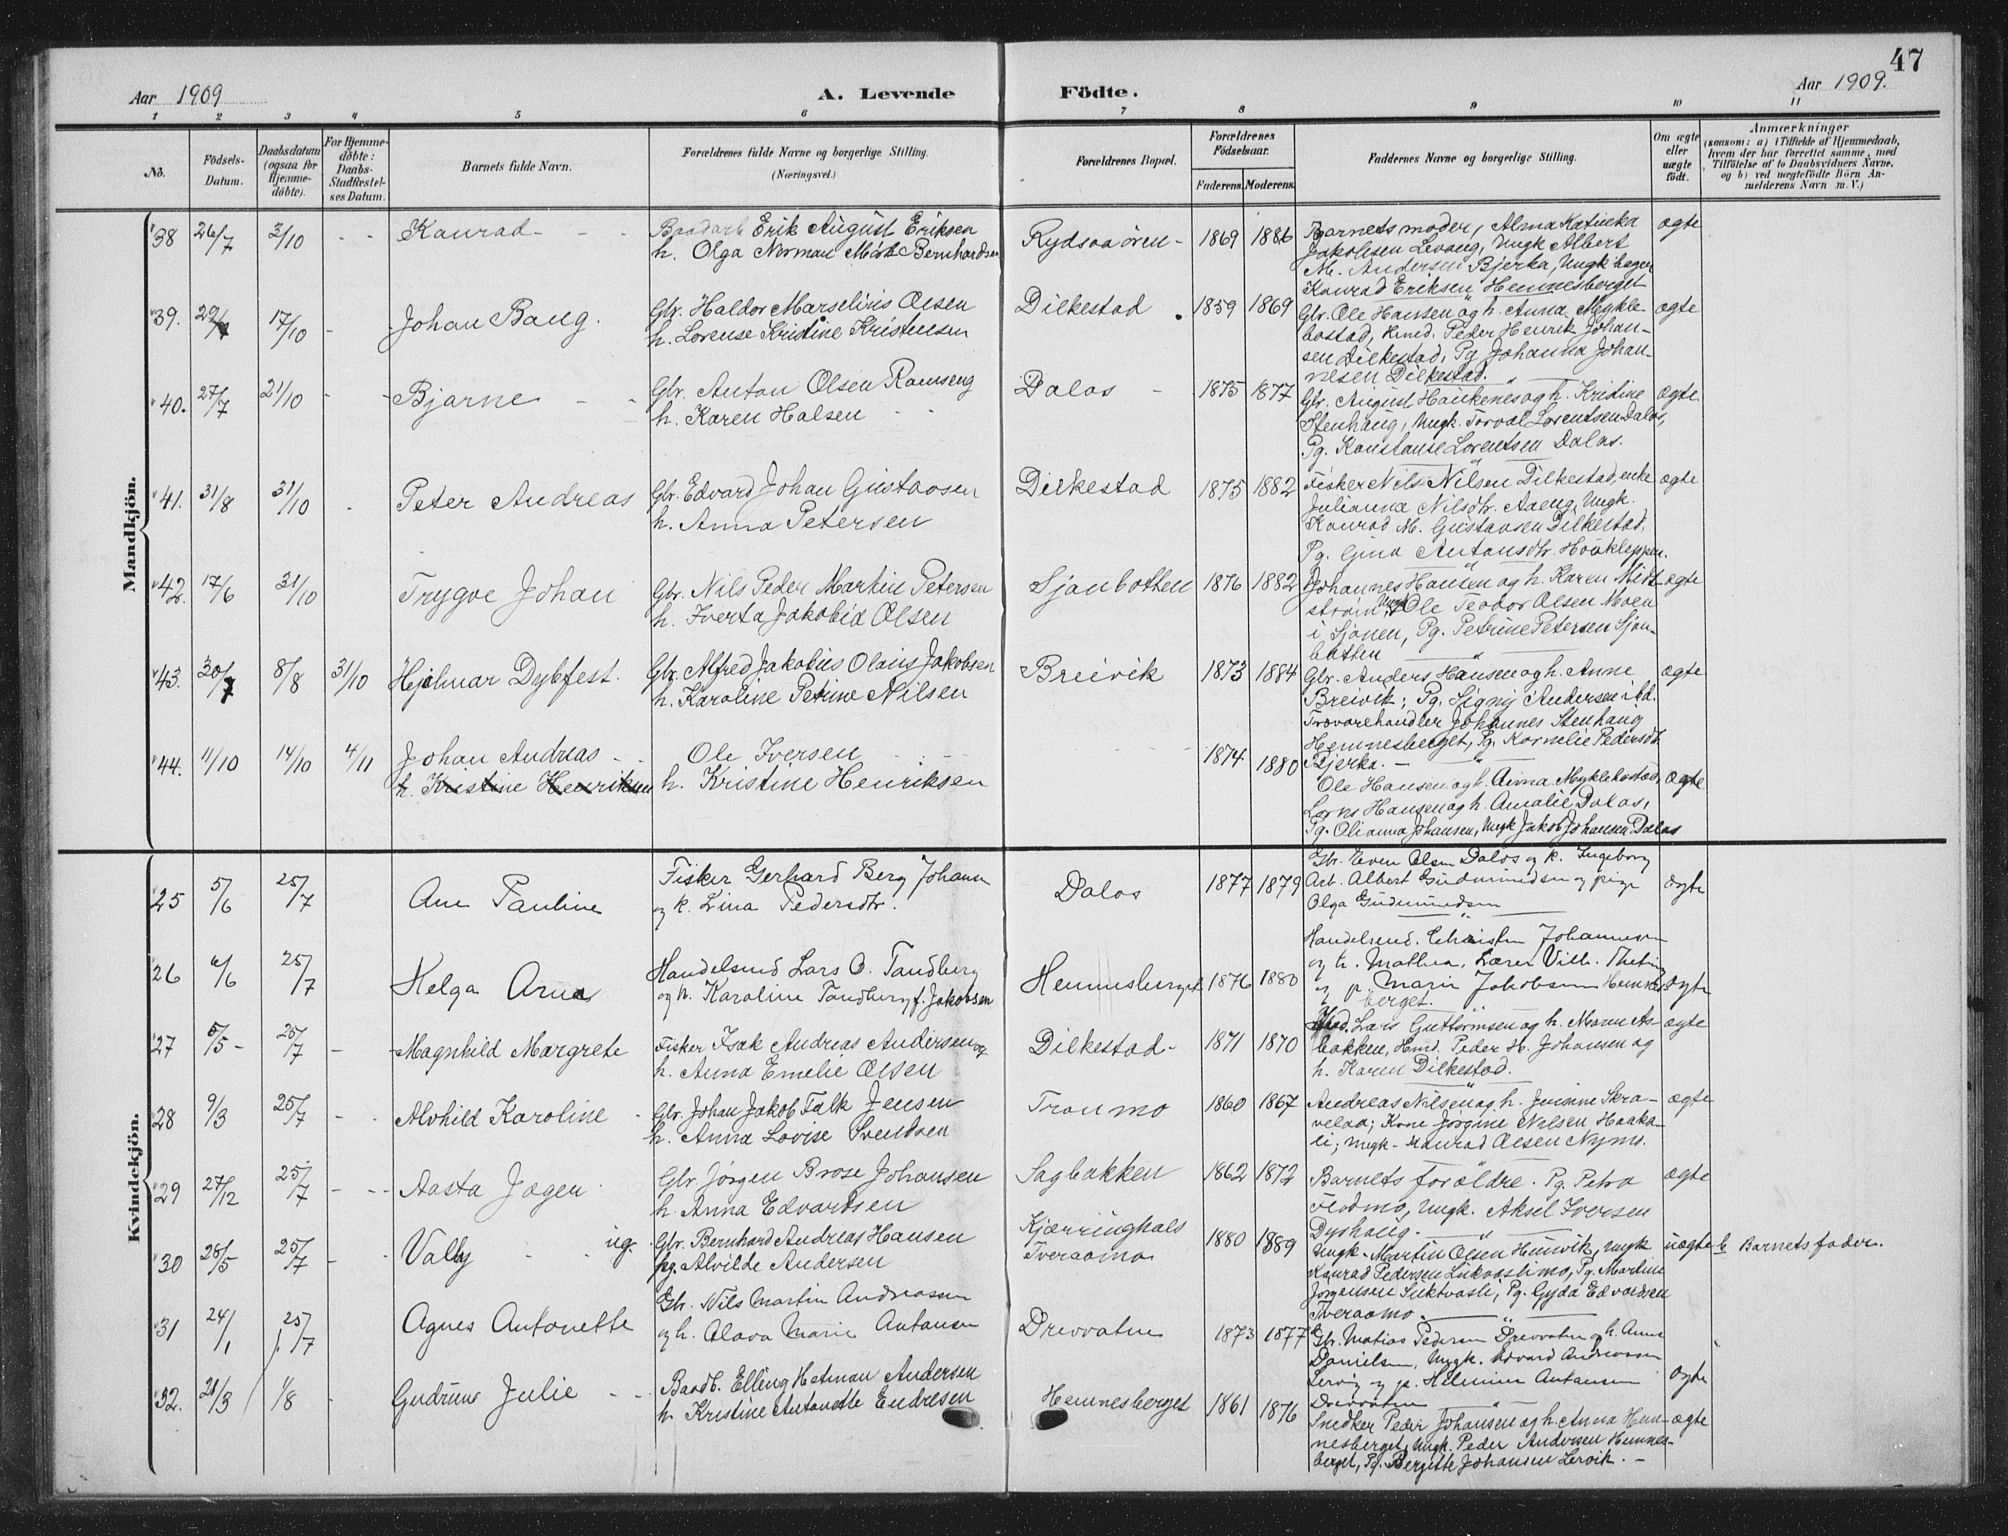 47
Aar 1909
A. Levende
Födte.
Aar 1909.
1 2 3 4 5 6 7 8 9 10 11
No.
Födsels-
Datum.
Daabsdatum
(ogsaa for
Hjemme-
döbte).
For Hjemme-
döbte:
Daabs-
Stadfæstel-
ses Datum.
Barnets fulde Navn.
Forældrenes fulde Navne og borgerlige Stilling.
(Næringsvei.)
Forældrenes Bopæl.
Forældrenes
Födselsaar.
Faderens. Moderens.
Faddernes Navne og borgerlige Stilling.
Om ægte
eller
uægte
födt.
Anmærkninger
(saasom: a) i Tilfælde af Hjemmedaab,
hvem der har forrettet samme, med
Tilföielse af to Daabsvidners Navne,
og b) ved uægtefödte Börn An-
melderens Navn m. V.)
Mandkjön.
38 26/7 3/10 - - Konrad - -
Baadarb Erik August Eriksen
h. Olga Norman Mörk Bernhardsen
Rydsaaøren - 1869 1886
Barnets moder, Alma Katinka
Jakobsen Levang, Ungk Albert
M. Andersen Bjerka, Ungk
Konrad Eriksen Hemnesberget
ægte
39. 29/7 17/10 - Johan Bang.
Gbr. Haldor Marselius Olsen
h. Lorense Kristine Kristensen
Dilkestad 1859 1869
Gbr. Ole Hansen og h. Anna Mykle-
bostad, Hmd. Peder Henrik Johan-
sen Dilkestad, Pg Johanna Johan-
nesen Dilkestad.
ægte
40. 27/7 21/10 - - Bjarne - -
Gbr. Anton Olsen Ramseng
h. Karen Halsen
Dalos - 1875 1877
Gbr. August Haukenes og h. Kristine
Stenhaug, Ungk. Torval Lorentsen Dalos,
Pg. Konstanse Lorentsen Dalos.
ægte.
41. 31/8 31/10 Peter Andreas
Gbr. Edvard Johan Gustavsen
h. Anna Petersen
Dilkestad 1875 1882
Fisker Nils Nilsen Dilkestad, enke
Julianna Nilsdtr. Aaeng, Ungk.
Konrad M. Gustavsen Dilkestad,
Pg. Gina Antonsdtr.
ægte
42. 17/6 31/10 Trygve Johan
Gbr. Nils Peder Martin Petersen
h. Iverta Jakobia Olsen
Sjonbotten 1876 1882
Johannes Hansen og h. Karen Midt-
strøm, Ungk Ole Teodor Olsen Moen
i Sjonen, Pg. Petrine Petersen Sjon-
botten
ægte
43. 30/7 8/8 31/10 Hjalmar Dybfest.
Gbr. Alfred Jakobus Olaus Jakobsen
h. Karoline Petrine Nilsen
Breivik 1873 1884
Gbr. Anders Hansen og h. Anne
Breivik; Pg. Signy Andersen ibd.
Trævarehandler Johannes Stenhaug
Hemnesberget, Pg. Kornelie Pedersdt.
Bjerka. -
ægte
44. 11/10 14/10 4/11 Johan Andreas -
h. Kristine Henriksen
Ole Iversen
h. Kristine Henriksen
1874 1880
Ole Hansen og h. Anna Myklebostad,
Lars Hansen og h. Amalie Dalos,
Pg. Olianna Johansen, Ungk Jakob Johansen Dalos
ægte
Kvindekjön.
25 5/6 25/7 Ane Pauline
Fisker Gerhard Berg Johans
og h. Lina Pedersdtr.
Dalos 1877 1879
Gbr. Even Olsen Dalos og h. Ingeborg
Arb. Albert Gudmundsen og pige
Olga Gudmundsen
ægte
26 6/6 25/7 Helga Arna
Handelsmd Lars O. Tandberg
og h. Karoline Tandberg f. Jakobsen
Hemnesberget 1876 1880
Handelsmd. Christen Johannesen
og h. Mathea, Lærer Vilh.
og p. Marie Jakobsen Hemnes-
berget.
ægte
27 5/5 - 25/7 - Magnhild Margrete
Fisker Isak Andreas Andersen og
h. Anna Emelie Olsen
Dilkestad - 1871 1870
Hmd. Lars Guttormsen og h. Maren As-
bakken, Hmd. Peder H. Johansen og
h. Karen Dilkestad.
ægte
28 9/3 25/7 - Alvhild Karoline
Gbr. Johan Jakob Falk Jensen
h. Anna Lovise Svendsen
Tronmo 1860 1867
Andreas Nilsen og h. Jensine Skra-
velaa; Kone Jörgine Nilsen Haaka-
li; Ungk - Konrad Olsen Nymo.
ægte
29 27/12 25/7 - - Aasta Jagen
Gbr. Jørgen Brose Johansen
h. Anna Edvardsen
Sagbakken 1862 1872
Barnets forældre. Pg. Petra
Flodmo, Ungk. Aksel Iversen
Dyshaug.
ægte
30 28/5 25/7 - - Valby - - ug.
Gbr. Bernhard Andreas Hansen
pg. Alvilde Andersen
Kjærringhals
Tveraamo 1880 1889
Ungk - Martin Olsen Hunvik, Ungk
Konrad Pedersen Lukvaslimo, Pg. Martine
Jørgensen Luktvasli, Pg. Gyda Edvardsen
Tveraamo.
uægte b Barnets fader.
31 24/1 25/7 Agnes Antonette
Gbr. Nils Martin Andreassen
og h. Olava Marie Antonsen
Drevvatne 1873 1877
Gbr. Matias Pedersen Drevvatne og h. Anne
Danielsen, Ungk. Edvard Andreassen
Lervig og p. Helmine Antonsen
Drevvatne
ægte
32. 21/3 1/8 - Gudrun Julie - -
Baadb. Elling Hetman Andersen
h. Kristine Antonette Endresen
Hemnesberget 1861 1876
Snedker Peder Johansen og h. Anna Hem-
nesberget, Ungk. Peder Andersen Hemnes-
berget, Pg. Bergitte Johansen Lervik. -
ægte